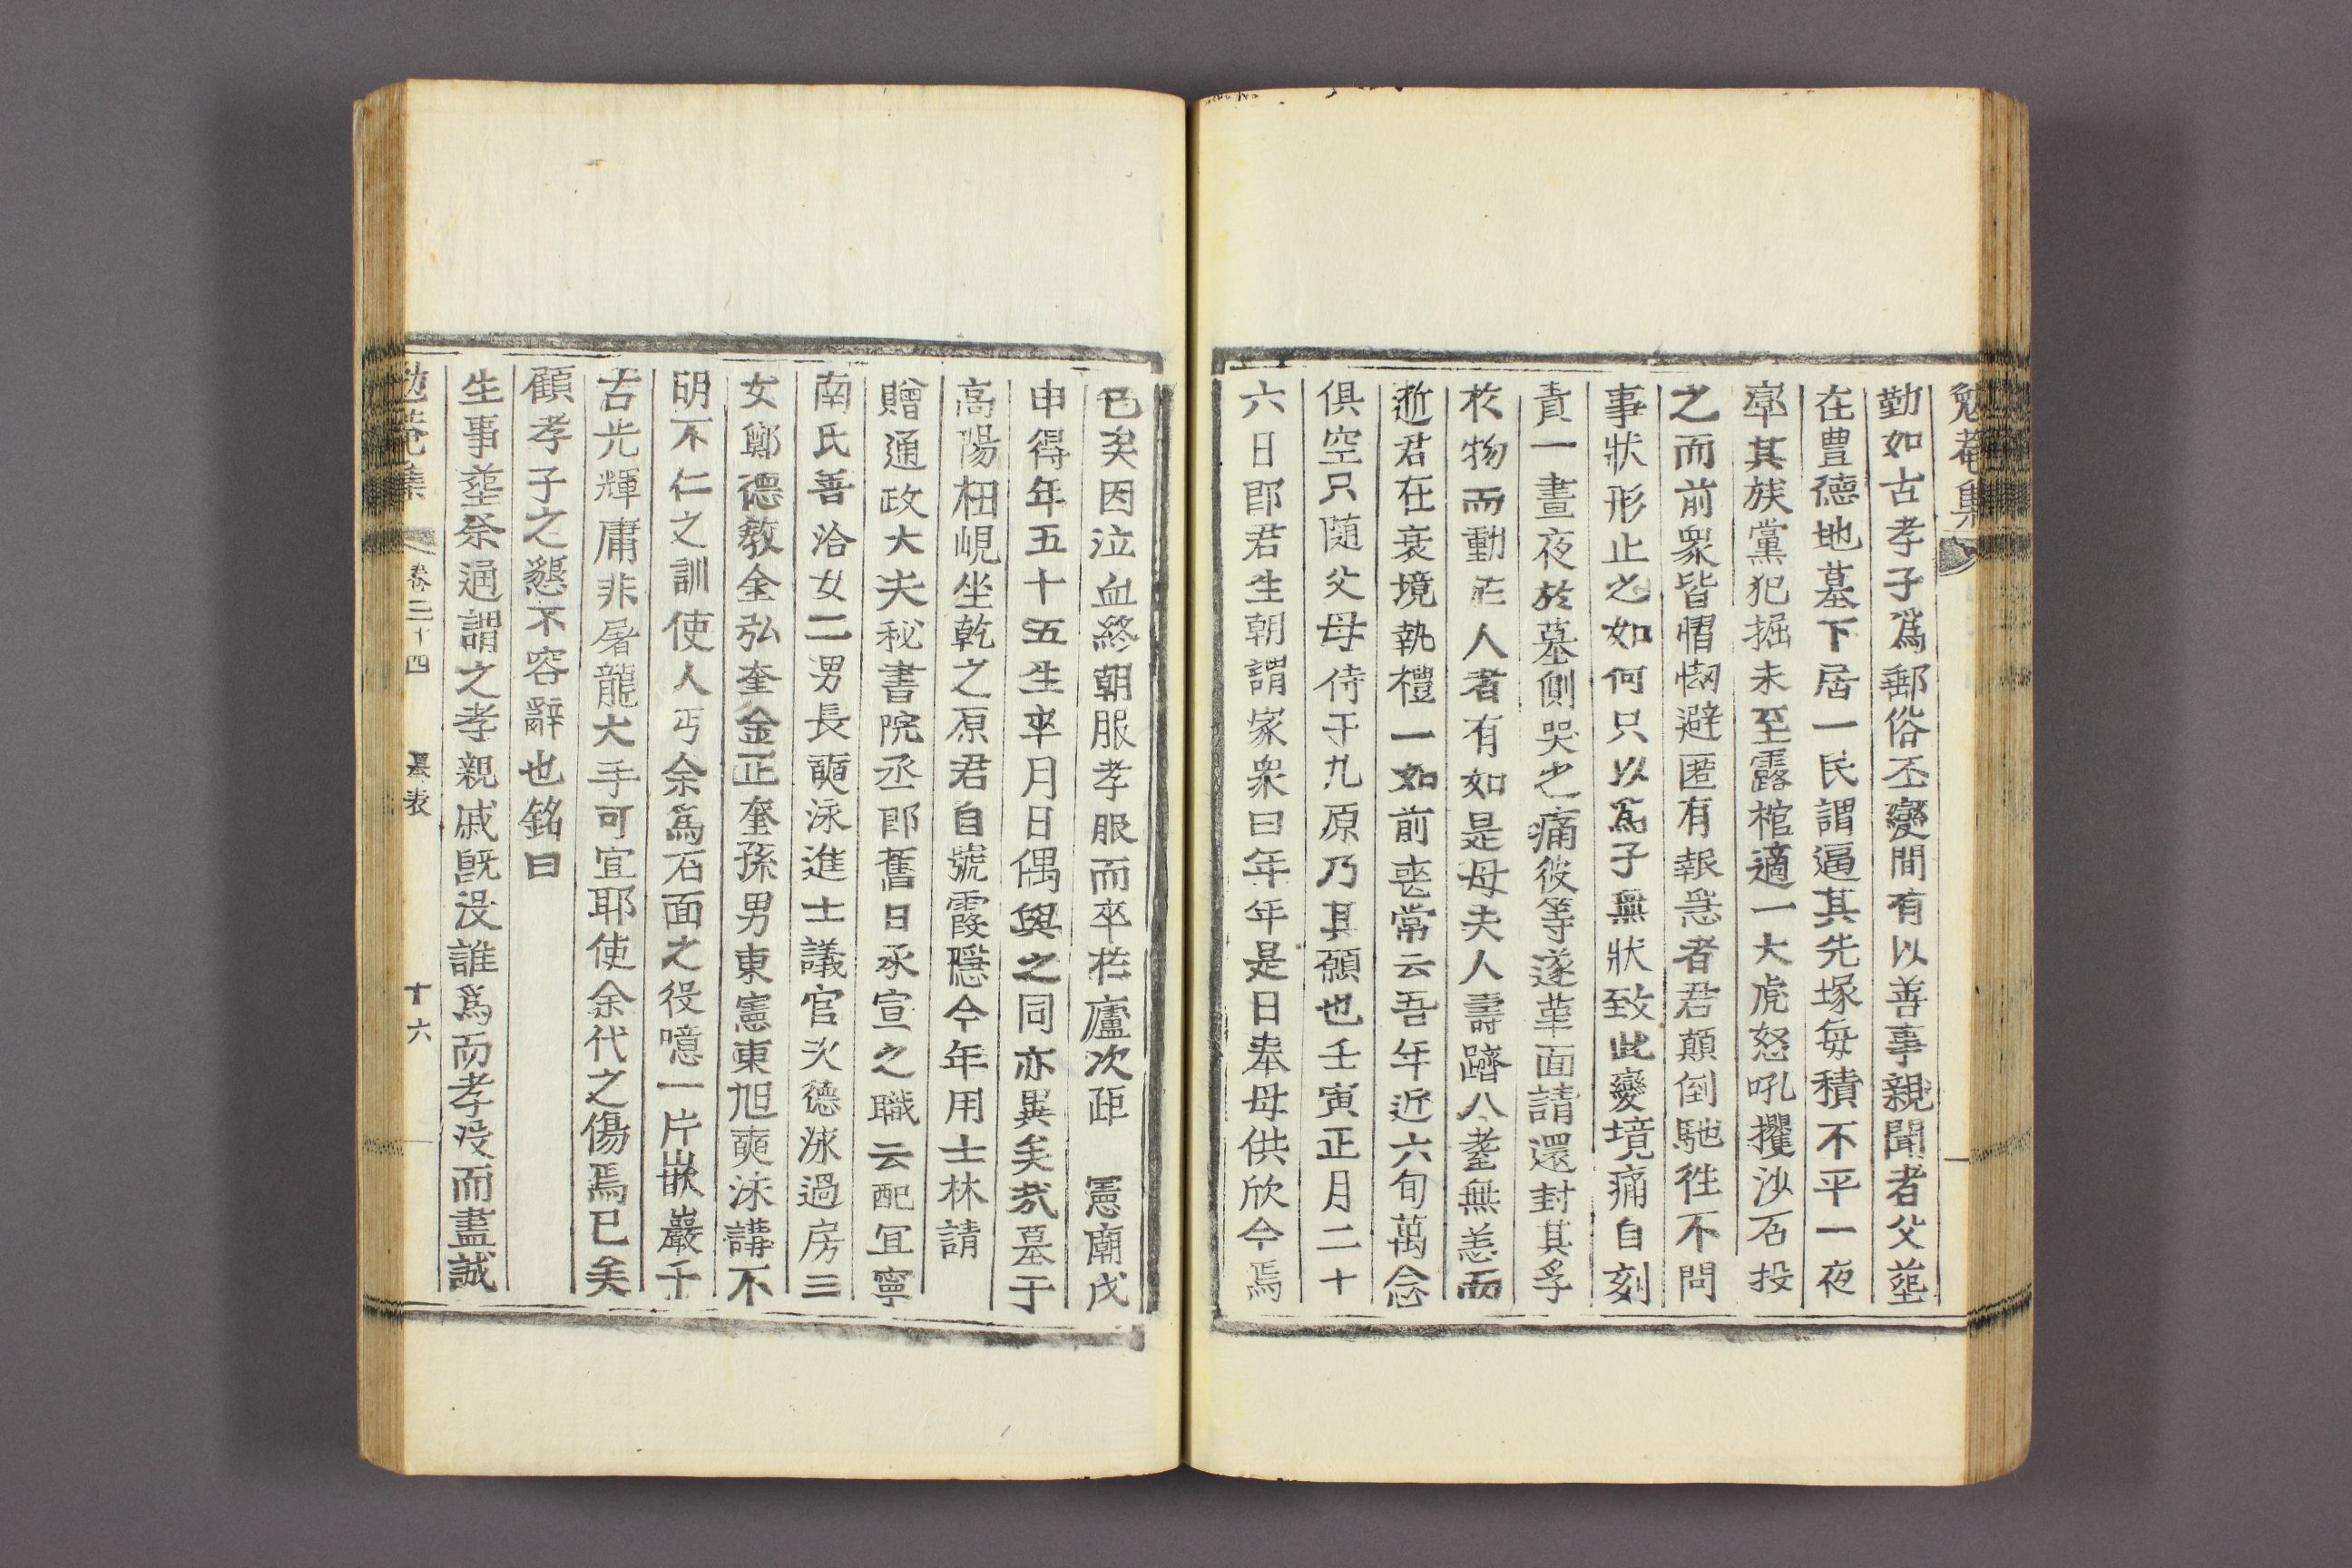 勉菴集
勤如古孝子爲鄕俗丕變間有以善事親聞者父塟
在豊德地墓下居一民謂逼其先塚每積不平一夜
率其族黨犯掘未至露棺適一大虎怒吼攫沙石投
之而前衆皆慴㥘避匿有報急者君顛倒馳徃不問
事狀形止之如何只以爲子無狀致此變境痛自刻
責一晝夜於墓側哭之痛彼等遂革面請還封其孚
於物而動於人者有如是母夫人壽躋八耋無恙而
逝君在衰境執禮一如前喪常云吾年近六旬萬念
俱空只隨父母侍于九原乃其願也壬寅正月二十
六日卽君生朝謂家衆曰年年是日奉母供欣今焉
已矣因泣血終朝服孝服而卒於廬次距 憲廟戊
申得年五十五生卒月日偶與之同亦異矣㢤墓于
高陽杻峴坐乾之原君自號霞隱今年用士林請
贈通政大夫秘書院丞卽舊日承宣之職云配宜寧
南氏善洽女二男長奭泳進士議官次德泳過房三
女鄭德敎金弘奎金正奎孫男東憲東旭奭泳講不
明不仁之訓使人丐余爲石面之役噫一片嵌巖千
古光輝庸非屠龍大手可宜耶使余代之傷焉已矣
顧孝子之懇不容辭也銘曰
生事塟祭通謂之孝親戚旣沒誰爲而孝歿而盡誠
勉菴集 卷三十四 墓表 十六